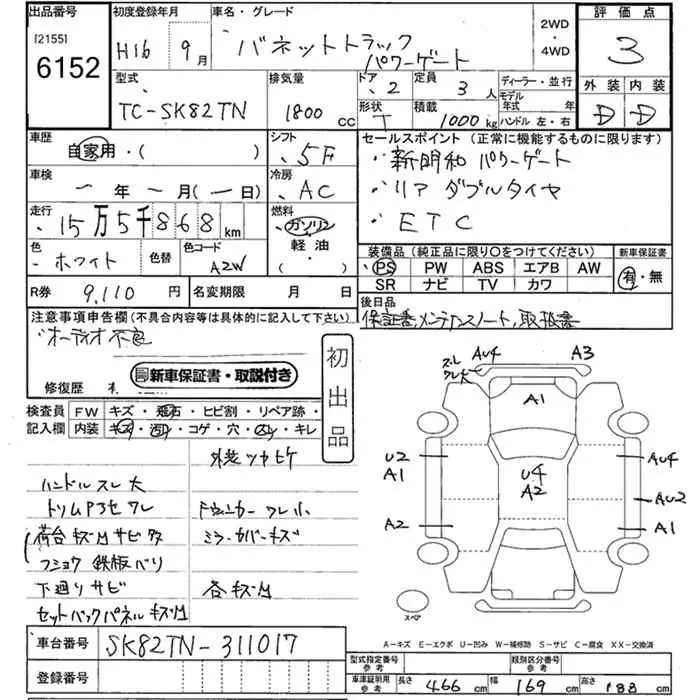 出品番号
[2155]
6152
初度登録年月
H16 9月
車名・グレード
バネットトラック
パワーゲート
2WD
・
4WD
評価点
3
外装 内装
D D
型式
TC-SK82TN
排気量
1800 CC
ドア 2
定員 3人
形状 T
積載 1000kg
ディーラー・並行
モデル年式 年
ハンドル 左・右
車歴
自家用・( )
車検
ー年ー月(ー日)
走行
15万5千868km
色
ホワイト
色替
色コード
A2W
シフト
5F
冷房
AC
燃料
ガソリン
軽油
・( )
セールスポイント(正常に機能するものに限ります)
・新明和 パワーゲート
・リア ダブルタイヤ
・ETC
装備品(純正品に限り〇をつけてください)
PS PW ABS エアB AW
SR ナビ TV カワ
新車保証書
有・無
R券 9,110円
名変期限 月 日
後日品
保証書,メンテナンスノート,取扱書
注意事項申告欄(不具合内容等は具体的に記入して下さい)
オーディオ不良
新車保証書・取説付き
修復歴
初出品
検査員 FW キズ・飛石・ヒビ割・リペア跡・
記入欄 内装 キズ・汚れ・コゲ・穴・スレ・キレ
外装ツヤヒケ
ハンドルスレ大
トリムP3セワレ
ドアバイザーワレ小
荷台キズUサビ多
ミラーカバーキズ
フショウ鉄板ベリ
下廻りサビ
各キズU
セットバックパネルキズU
ズレ
ワレ大
AU4 A3
A1
U2
A1
U4
A2
AU4
AU2
A2
A1
スペア
A-キズ E-エクボ U-凹み W-補修跡 S-サビ C-腐食 XX-交換済
車台番号 SK82TN-311017
登録番号
型式指定番号
参考
類別区分番号
参考
車庫証明用
参考
長さ 466cm
幅 169cm
高さ 188cm